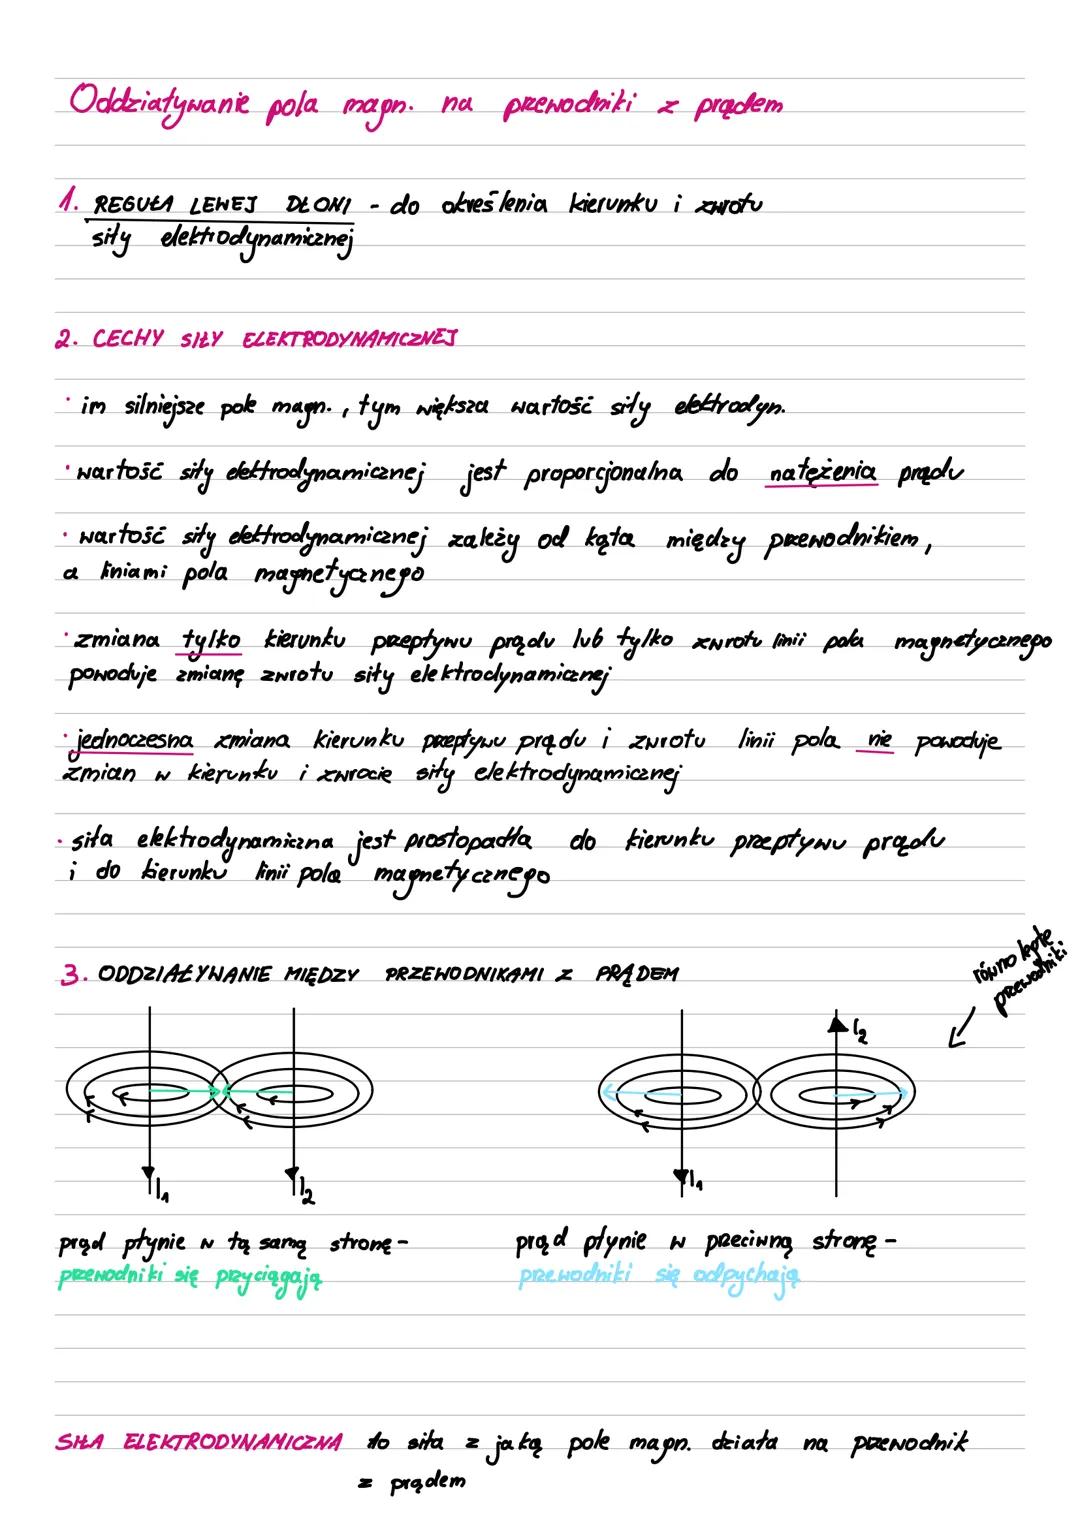 Oddziaływanie pola magn. na przewodniki z prądem
1. REGUŁA LEWEJ DŁONI - do określenia kierunku i zwrotu
siły elektrodynamicznej
2. CECHY SIŁY ELEKTRODYNAMICZNEJ
· im silniejsze pole magn., tym większa wartość siły elektrodyn.
· wartość siły elektrodynamicznej jest proporcjonalna do natężenia prądu
· wartość siły elektrodynamicznej zależy od kąta między przewodnikiem,
a liniami pola magnetycznego
· zmiana tylko kierunku przepływu prądu lub tylko zwrotu linii pola magnetycznego
powoduje zmianę zwrotu siły elektrodynamicznej
· jednoczesna zmiana kierunku przepływu prądu i zwrotu linii pola nie powoduje
zmian w kierunku i zwrocie siły elektrodynamicznej
· siła elektrodynamiczna jest prostopadła do kierunku przepływu prądu
i do kierunku linii pola magnetycznego
równoległe
przewodniki
3. ODDZIAŁYWANIE MIĘDZY PRZEWODNIKAMI Z PRĄDEM
I₂
I₁ I₂ I₁
prąd płynie w tą samą stronę - prąd płynie w przeciwną stronę -
przewodniki się przyciągają przewodniki się odpychają
SIŁA ELEKTRODYNAMICZNA to siła z jaką pole magn. działa na przewodnik
z prądem